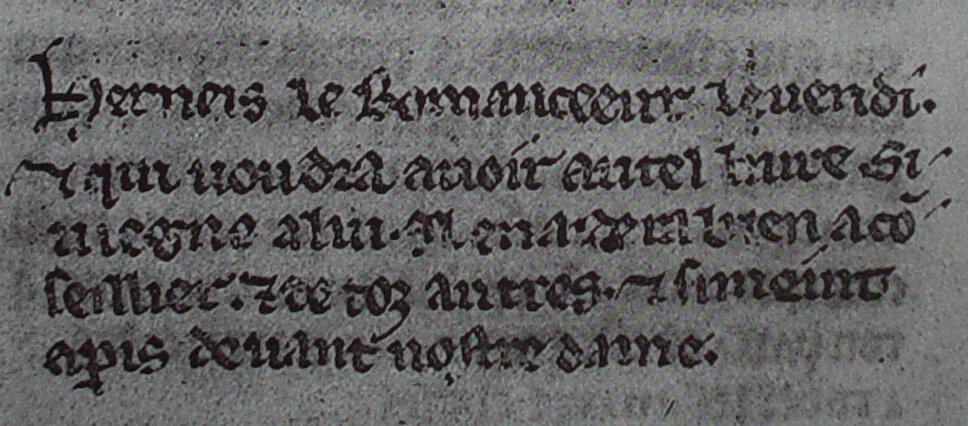 Herneis le Romanceeur le uendi.
⁊ qui uoudra auoir autel liure si
uiegne a lui. il en aidera bien a cō
seillier. ⁊ de toz autres. ⁊ si meint
a p̱is deuant nostre dame.